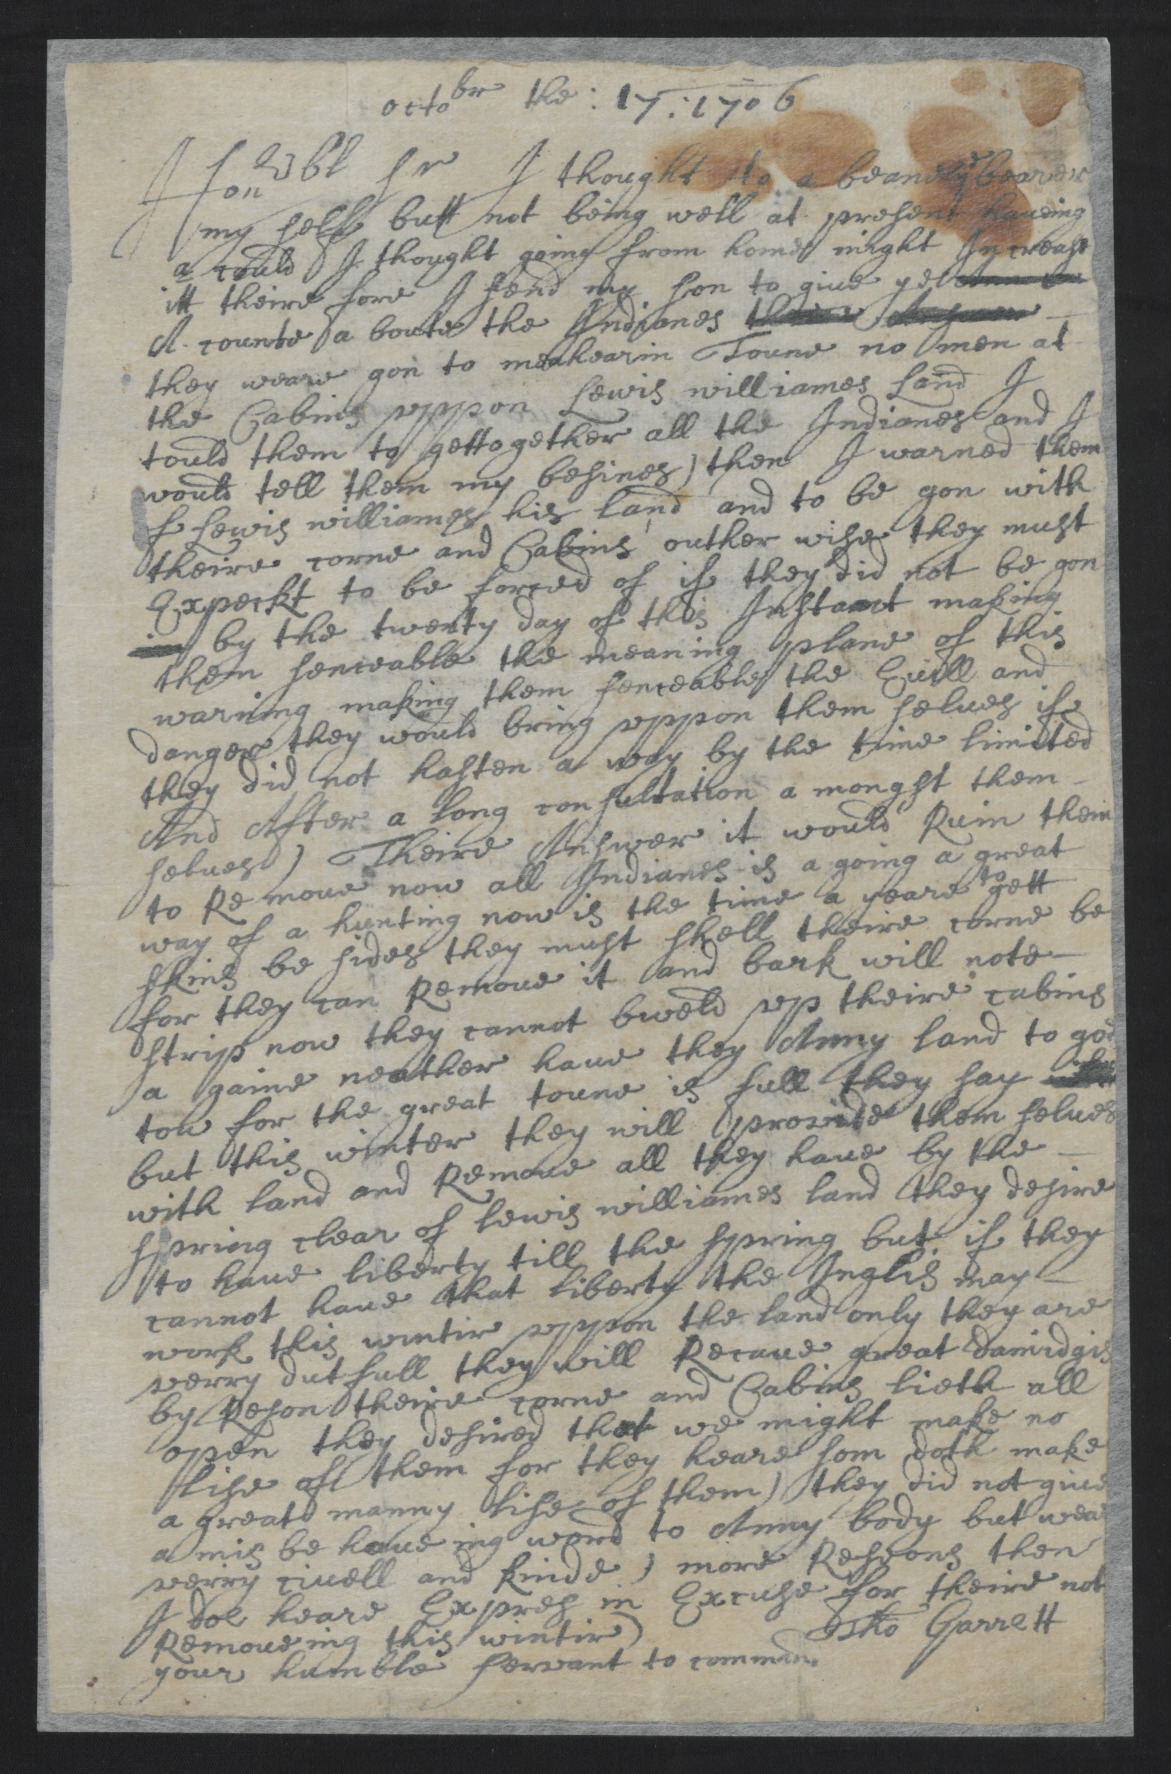 octobr the : 17 : 1706
Honrbl Sr I thought to a beane ye bearer
my self butt not being well at present haueing
a could I thought going from home might Increase
itt theire fore I send my son to giue ye
A counte a boute the Indianes
they weare gon to meahearin Toune no men at
the Cabins uppon Lewis williames Land I
tould them to gettogether all the Indianes and I
would tell them my besines) then I warned them
of Lewis williames his land and to be gon with
theire corne and Cabins outher wise they must
Expeckt to be forced of if they did not be gon
by the twenty day of this Instant making
them senceable the meaning plane of this
warning making them senceable the Euill and
danger they would bring uppon them selues if
they did not hasten a way by the time limited
And After a long consultation a mongst them
selues) Theire Answer it would Ruin them
to Remoue now all Indianes is a going a great
way of a hunting now is the time a yeare to gett
skins be sides they must shell theire corne be
for they can Remoue it and bark will note
strip now they cannot bweld up theire cabins
a gaine neather haue they Anny land to goe
tow for the great toune is full they say
but this winter they will provide them selues
with land and Remoue all they haue by the
spring clear of Lewis williames land they desire
to haue liberty till the spring but if they
cannot haue that liberty the Inglis may
work this wintir uppon the land only they are
verry dutfull they will Recaue great damidgis
by Reson theire corne and Cabins lieth all
open they desired that we might make no
lise of them for they heare som doth make
a great manny lise of them) they did not giue
a mis be haueing word to Anny body but weare
verry ciuell and kinde) more Ressons then
I doe heare Expres in Excuse for theire not
Remoueing this wintir) Tho Garrett
your humble servant to comman